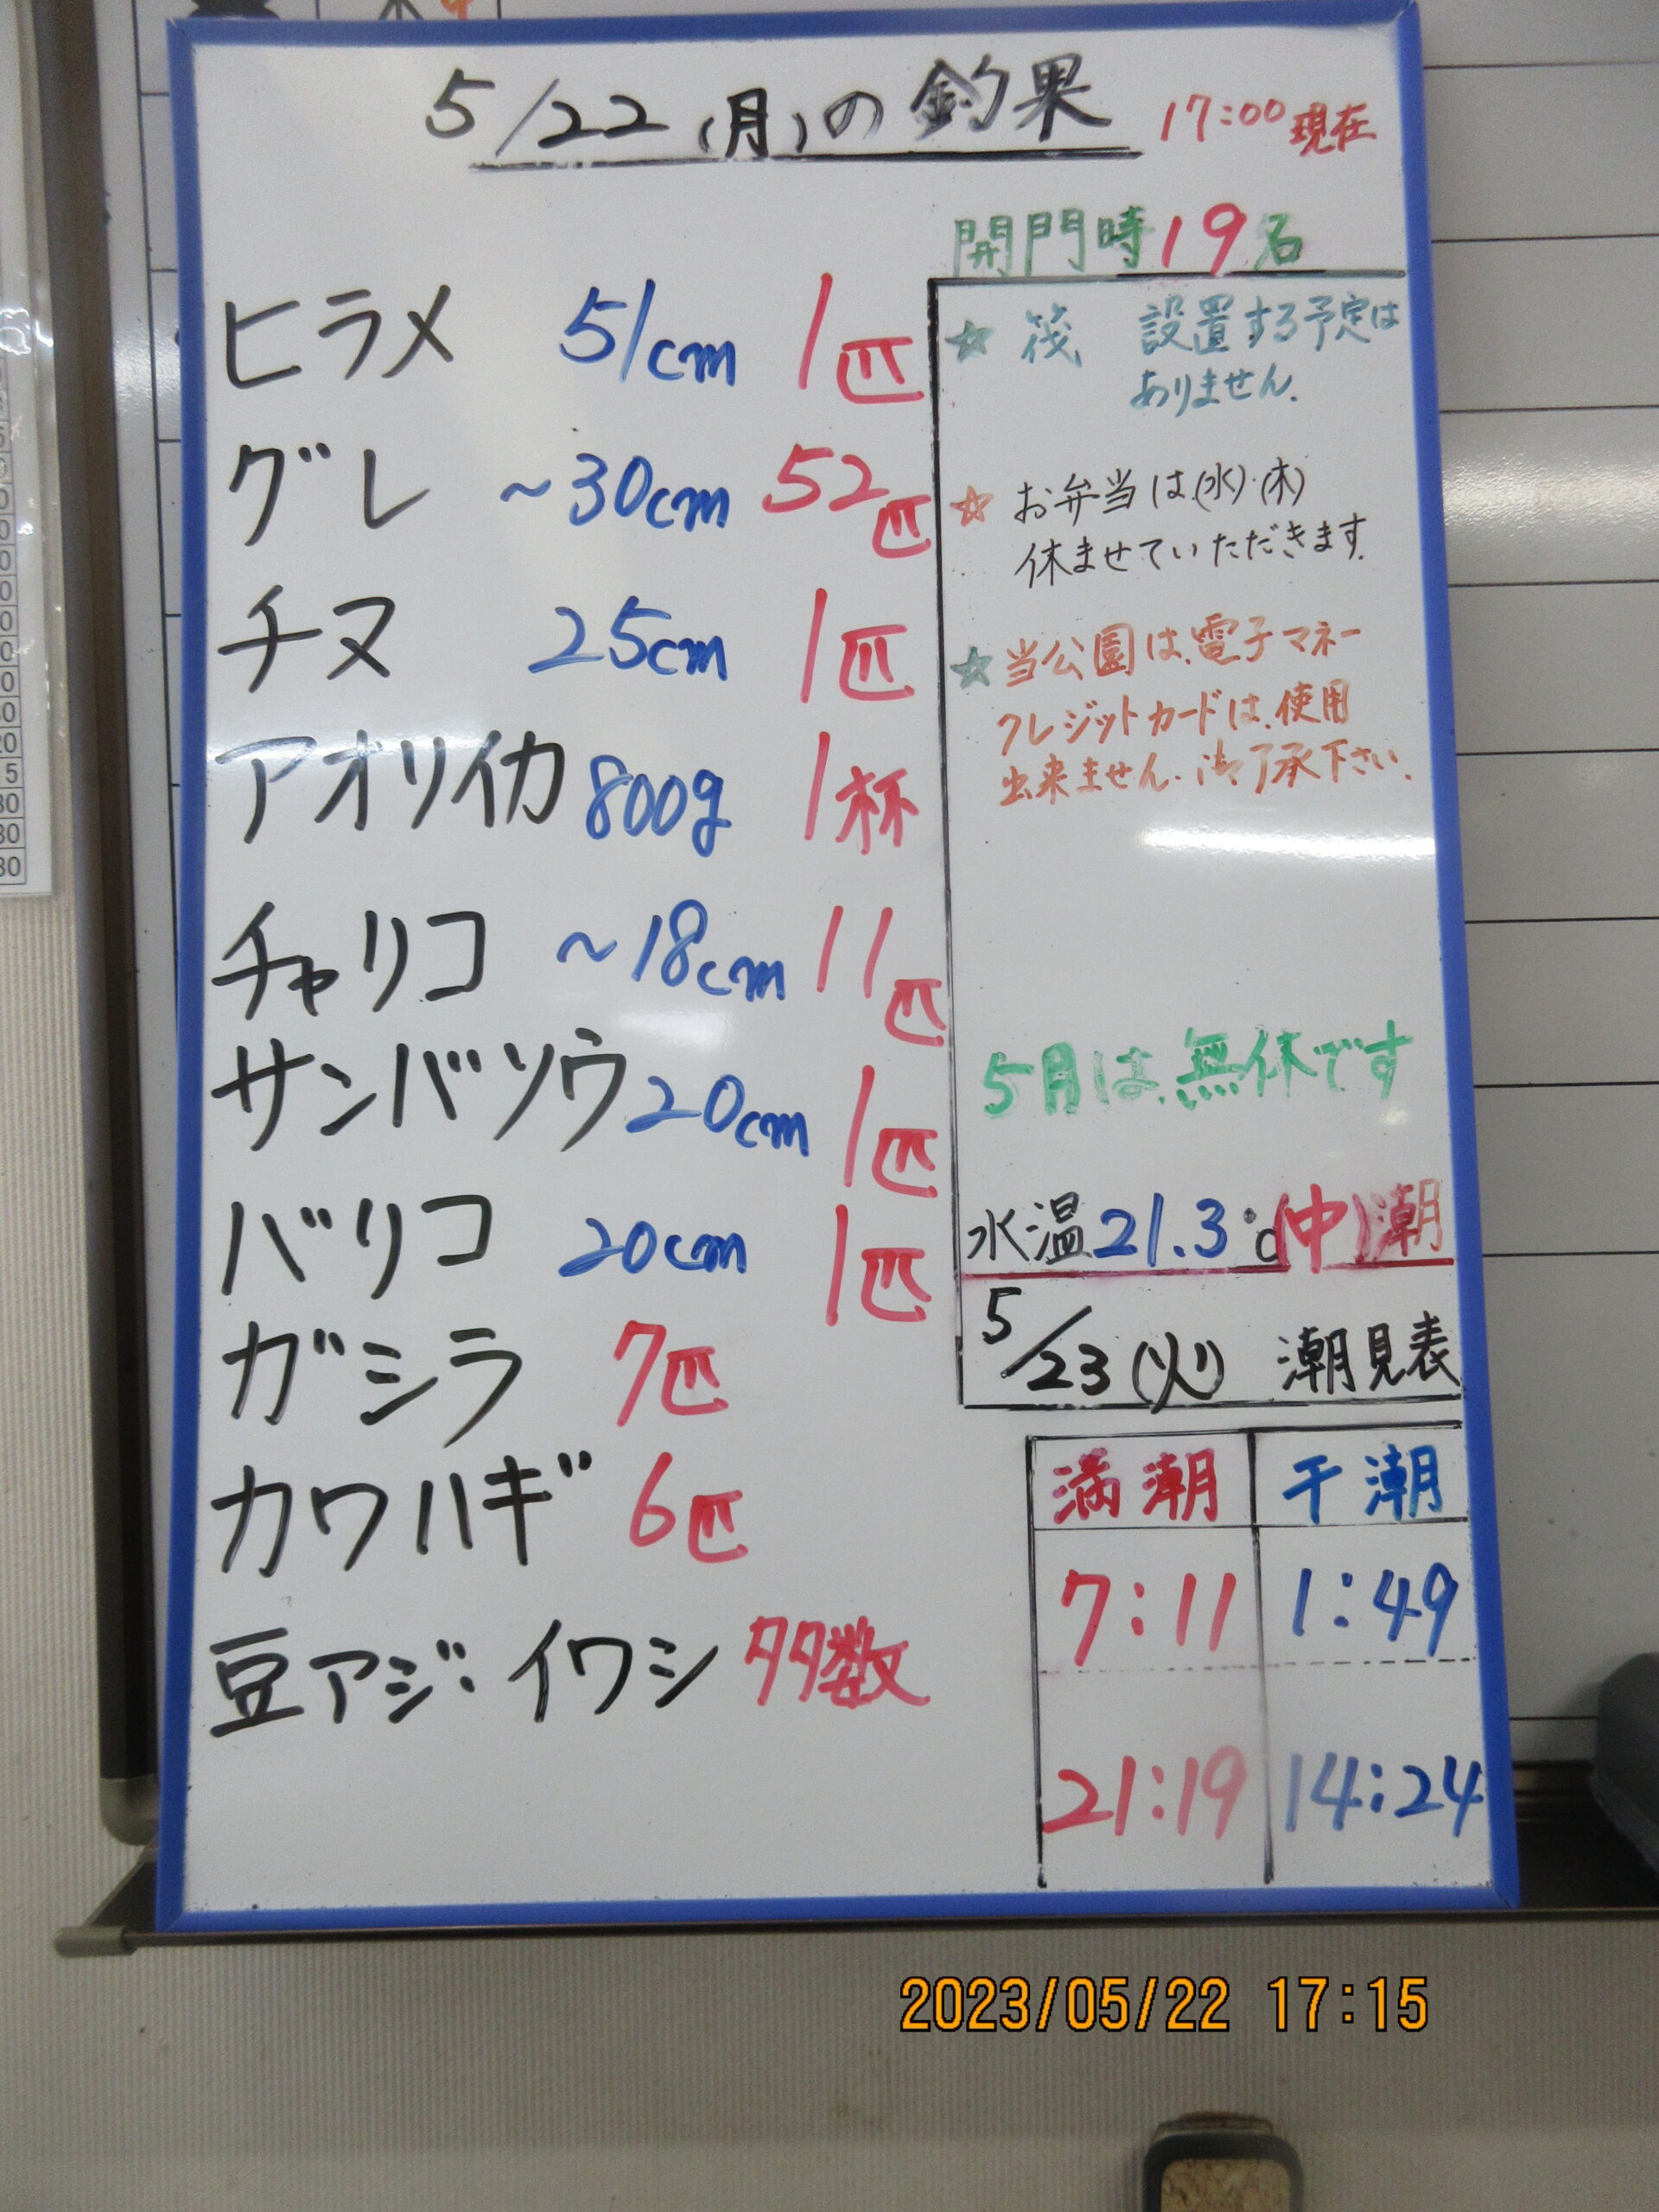 5/22(月)の釣果 17:00現在
開門時19名
ヒラメ 51cm 1匹
グレ ~30cm 52匹
チヌ 25cm 1匹
アオリイカ 800g 1杯
チャリコ ~18cm 11匹
サンバソウ 20cm 1匹
バリコ 20cm 1匹
ガシラ 7匹
カワハギ 6匹
豆アジ・イワシ 多数
☆ 筏 設置する予定は
ありません.
☆ お弁当は(水)・(木)
休ませていただきます.
☆ 当公園は、電子マネー
クレジットカードは、使用
出来ません. 御了承下さい.
5月は、無休です
水温21.3℃(中)潮
5/23(火) 潮見表
満潮 干潮
7:11 1:49
21:19 14:24
2023/05/22 17:15